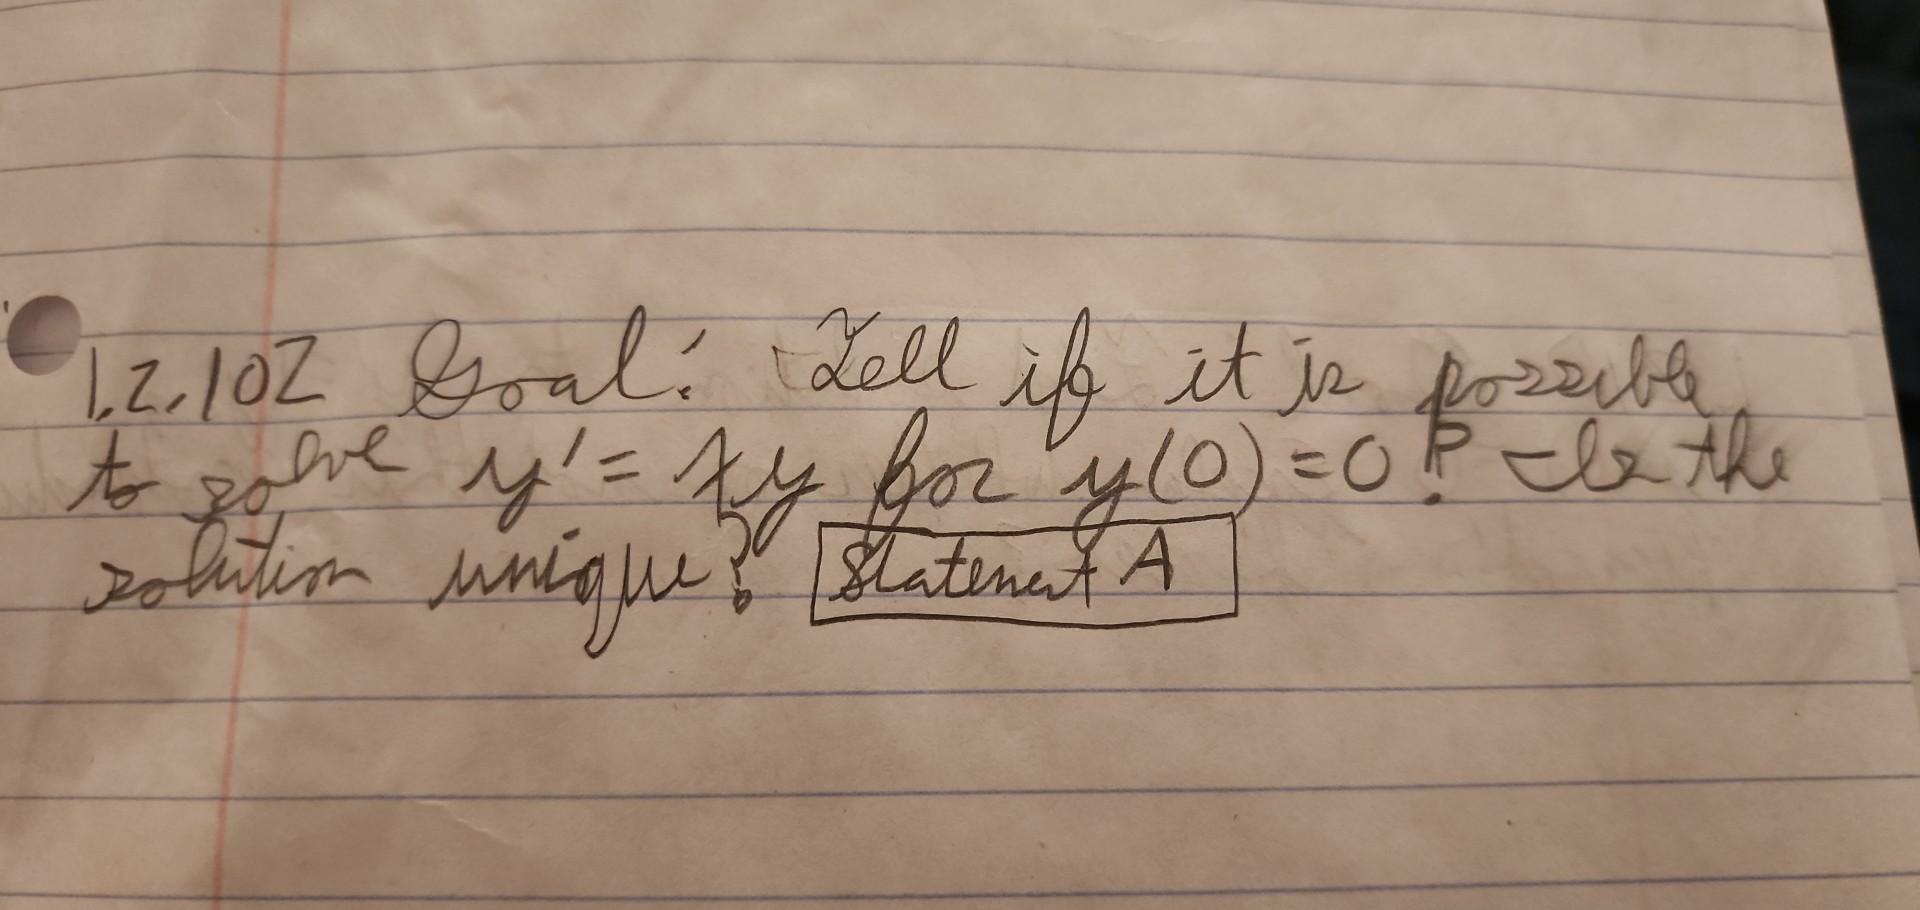 1.2.102 Goal: Tell if it is possible
to solve y' = xy for y(0) = 0? Is the
solution unique? Statement A